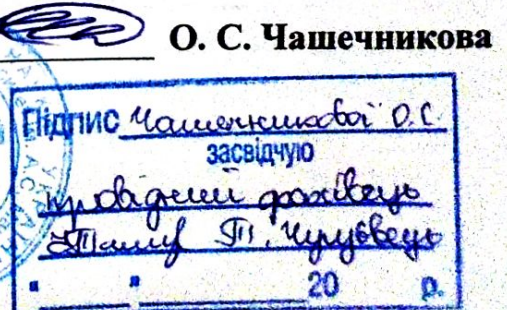 О. С. Чашечникова
Підпис Чашечникової О.С.
засвідчую
провідний фахівець
Т.
" " 20 р.